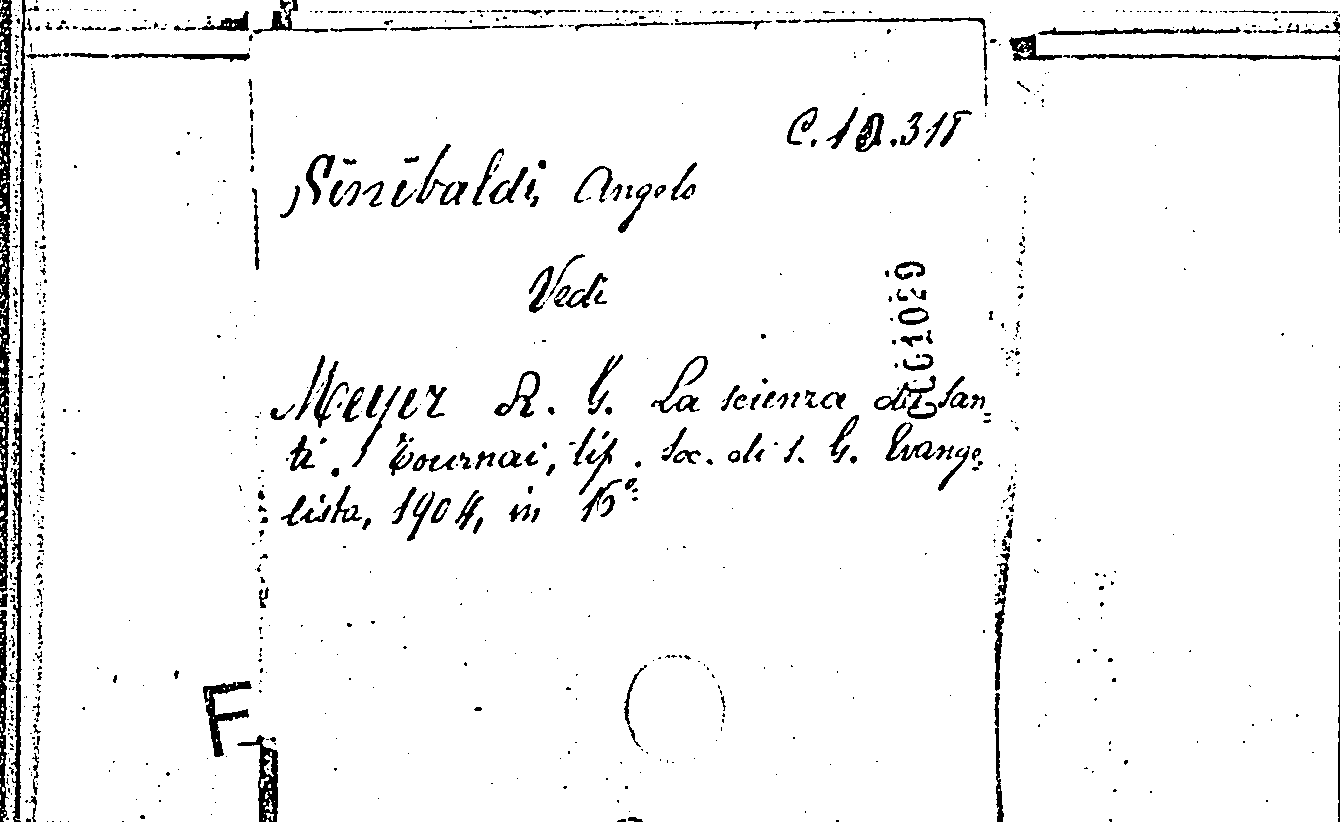 Sinibaldi, Angelo
Vedi
Meyer R. G. La scienza dei San=
ti. Tournai, tip. Soc. di S. G. Evange=
lista, 1904, in 16º
F